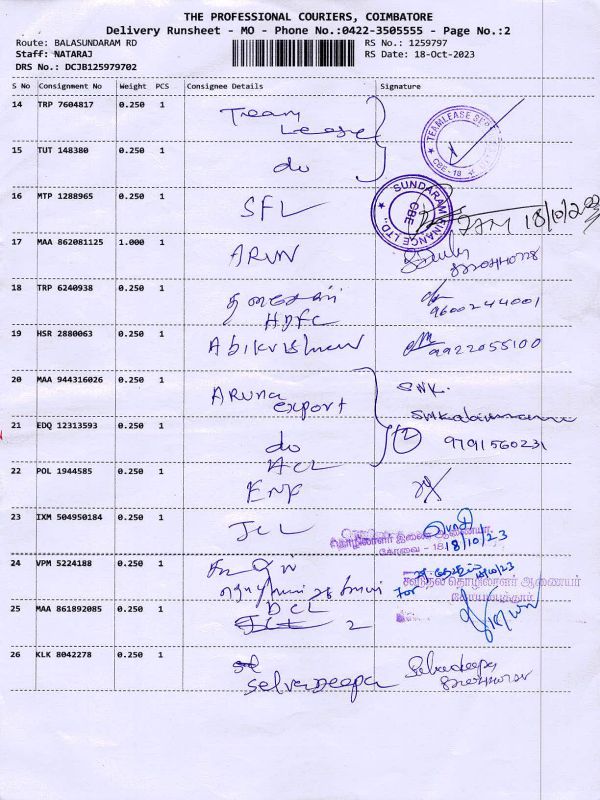 THE PROFESSIONAL COURIERS, COIMBATORE
Delivery Runsheet - MO - Phone No.:0422-3505555 - Page No.:2
Route: BALASUNDARAM RD RS No.: 1259797
Staff: NATARAJ RS Date: 18-Oct-2023
DRS No.: DCJB125979702
S No Consignment No Weight PCS Consignee Details Signature
14 TRP 7604817 0.250 1 Team Lease TEAMLEASE CBE-18
15 TUT 148380 0.250 1 do
16 MTP 1288965 0.250 1 SFL SUNDARAM FINANCE LTD., CBE 18/10/2023
17 MAA 862081125 1.000 1 ARUN
18 TRP 6240938 0.250 1 9600244001
HDFC
19 HSR 2880063 0.250 1 Abikrishnan 9922055100
20 MAA 944316026 0.250 1 Aruna export SWK.
21 EDQ 12313593 0.250 1 do 2 9791560231
ACL
22 POL 1944585 0.250 1
23 IXM 504950184 0.250 1 JCL தொழிலாளர் இணை ஆணையர்
கோவை - 18 18/10/23
24 VPM 5224188 0.250 1 For கூடுதல் தொழிலாளர் ஆணையர்
கோயம்புத்தூர்
DCL
25 MAA 861892085 0.250 1 2
26 KLK 8042278 0.250 1 Selvadeepa Selvadeepa